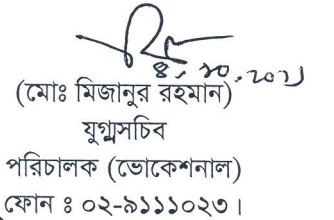 ৪.১০.২০২১
(মোঃ মিজানুর রহমান)
যুগ্মসচিব
পরিচালক (ভোকেশনাল)
ফোন ঃ ০২-৯১১১০২৩।